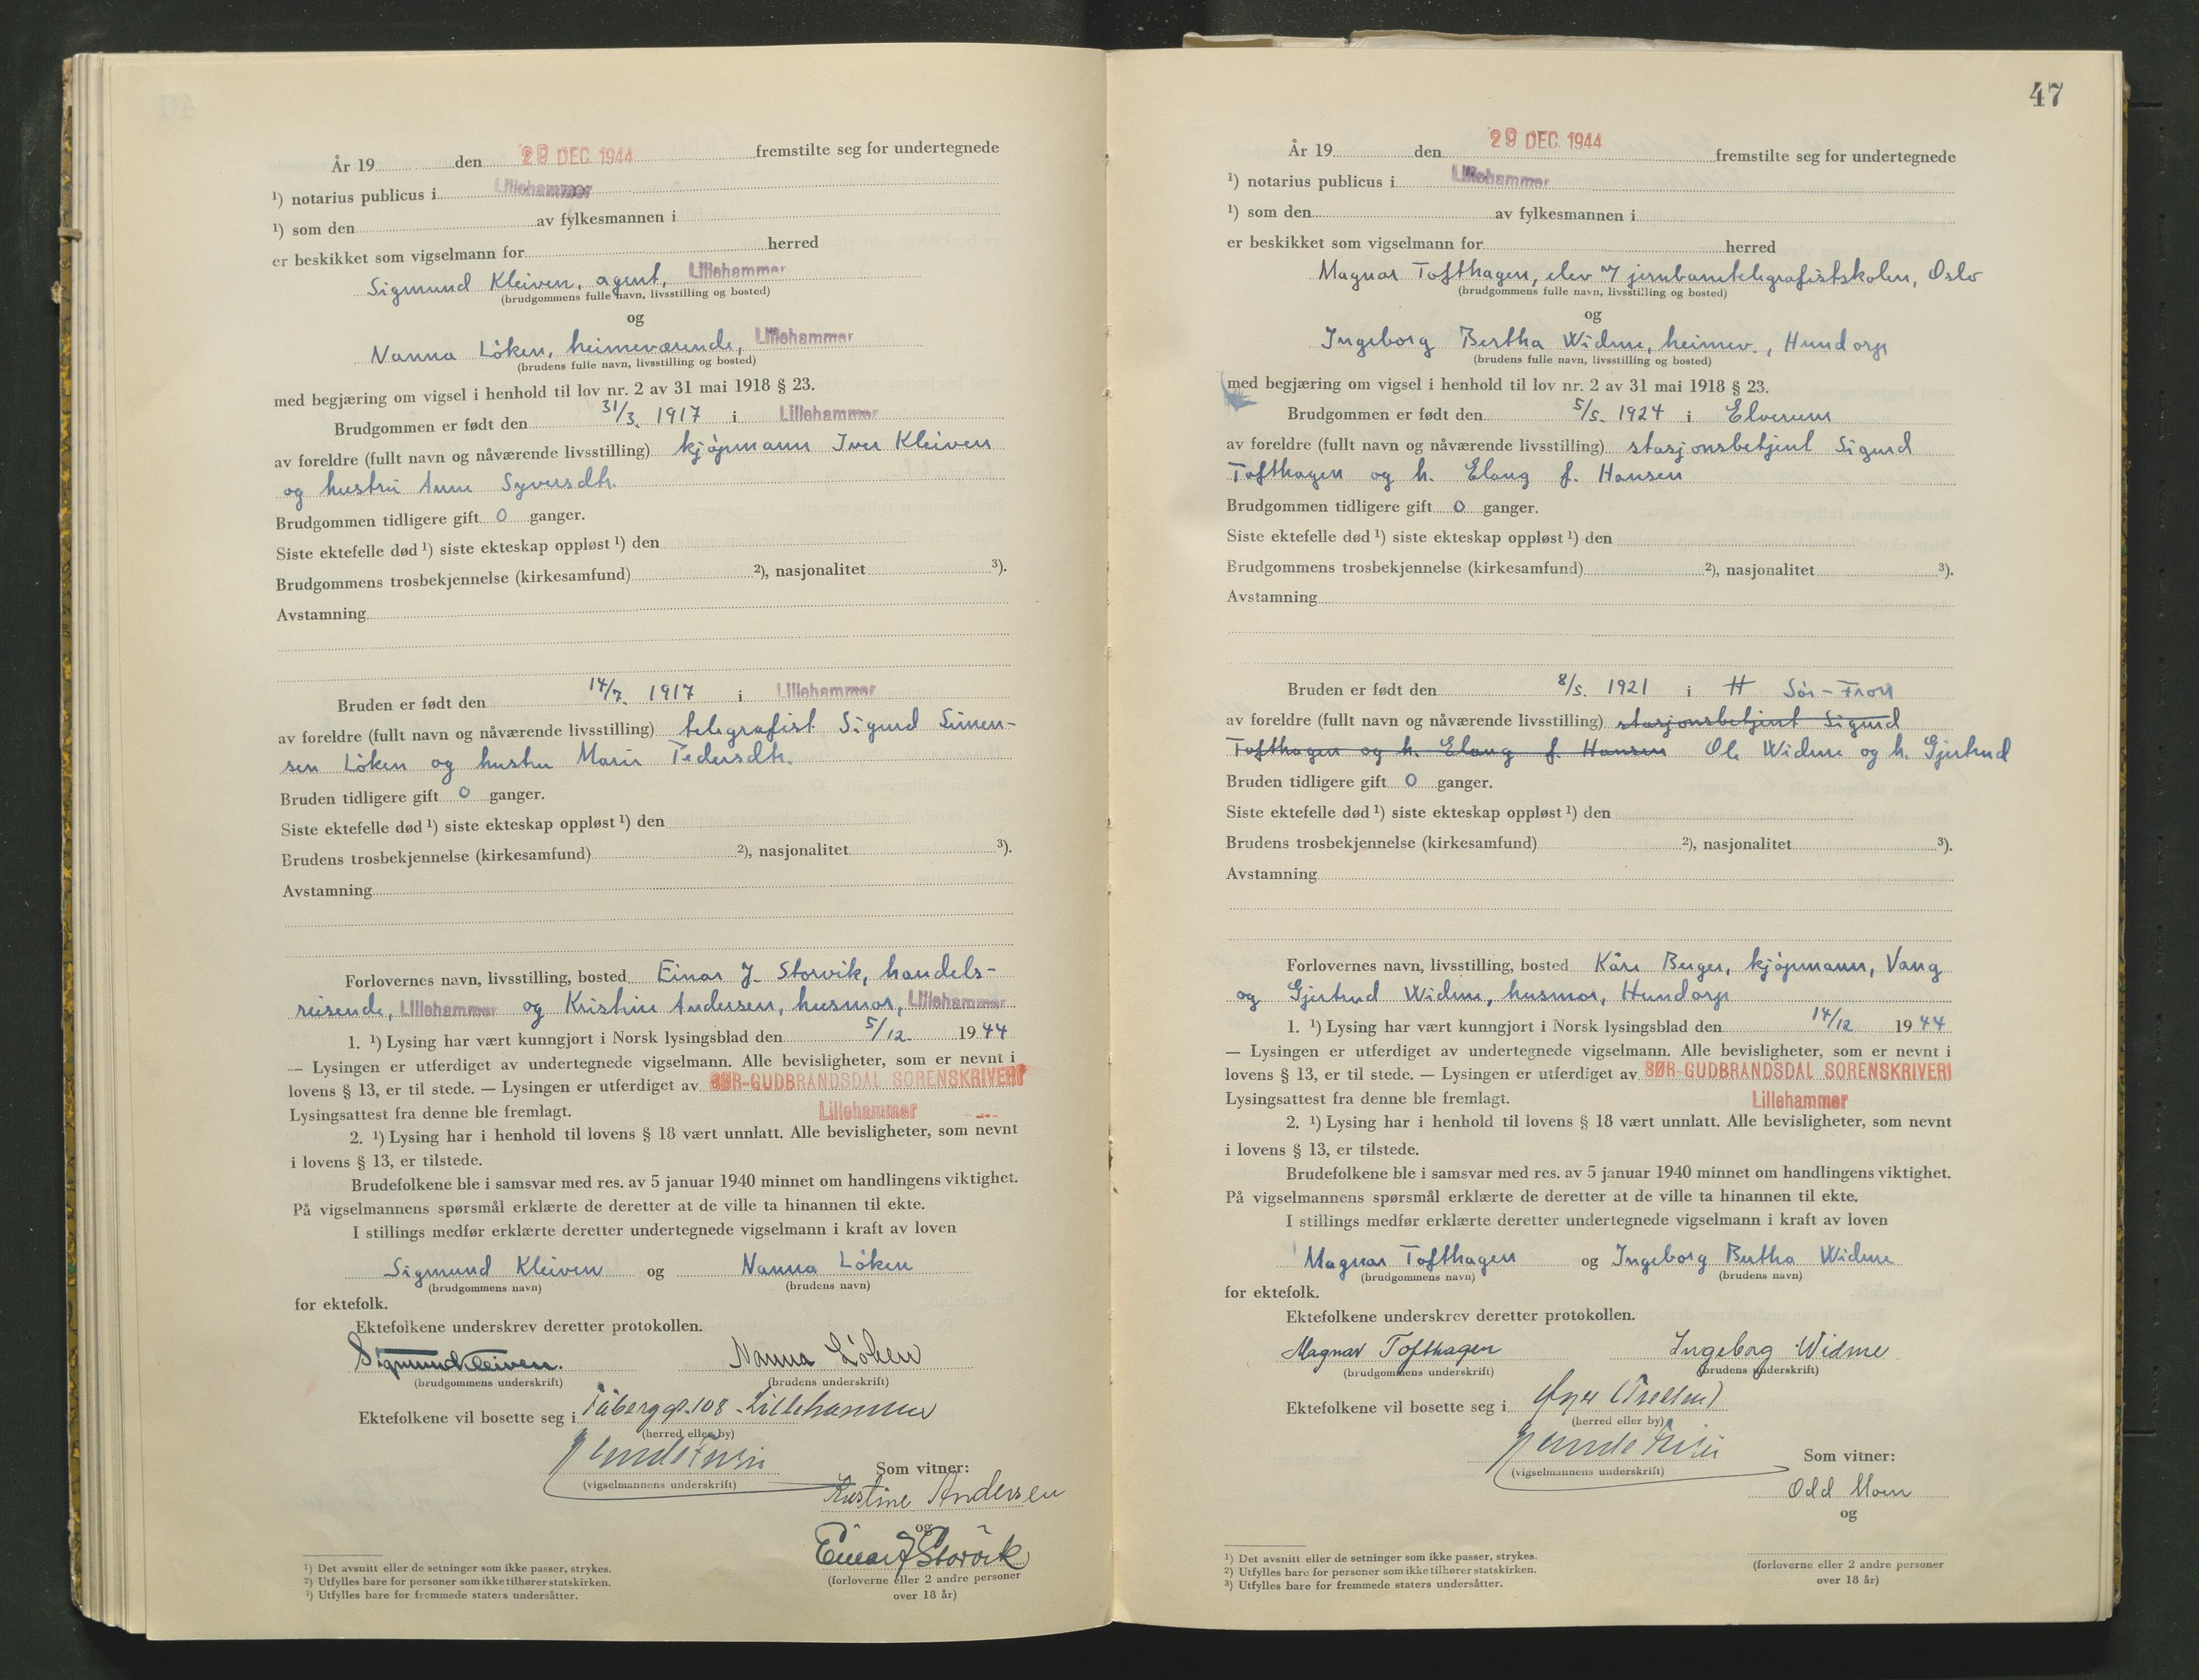 År 19 den 29 DEC 1944 fremstilte seg for undertegnede
¹) notarius publicus i Lillehammer
¹) som den av fylkesmannen i
er beskikket som vigselmann for herred
Sigmund Kleiven, agent, Lillehammer
(brudgommens fulle navn, livsstilling og bosted)
og
Nanna Löken, heimeværende, Lillehammer
(brudens fulle navn, livsstilling og bosted)
med begjæring om vigsel i henhold til lov nr. 2 av 31 mai 1918 § 23.
Brudgommen er født den 31/3. 1917 i Lillehammer
av foreldre (fullt navn og nåværende livsstilling) kjöpmann Iver Kleiven
og hustru Anne Syversdtr.
Brudgommen tidligere gift 0 ganger.
Siste ektefelle død ¹) siste ekteskap oppløst ¹) den
Brudgommens trosbekjennelse (kirkesamfund) ²), nasjonalitet ³).
Avstamning
Bruden er født den 14/7. 1917 i Lillehammer
av foreldre (fullt navn og nåværende livsstilling) telegrafist Sigurd Simen-
sen Löken og hustru Marie Pedersdtr.
Bruden tidligere gift 0 ganger.
Siste ektefelle død ¹) siste ekteskap oppløst ¹) den
Brudens trosbekjennelse (kirkesamfund) ²), nasjonalitet ³).
Avstamning
Forlovernes navn, livsstilling, bosted Einar J. Storvik, handels-
reisende, Lillehammer og Kristine Andersen, husmor, Lillehammer
1. ¹) Lysing har vært kunngjort i Norsk lysingsblad den 5/12. 1944
— Lysingen er utferdiget av undertegnede vigselmann. Alle bevisligheter, som er nevnt i
lovens § 13, er til stede. — Lysingen er utferdiget av SØR-GUDBRANDSDAL SORENSKRIVERI
Lysingsattest fra denne ble fremlagt. Lillehammer
2. ¹) Lysing har i henhold til lovens § 18 vært unnlatt. Alle bevisligheter, som nevnt
i lovens § 13, er tilstede.
Brudefolkene ble i samsvar med res. av 5 januar 1940 minnet om handlingens viktighet.
På vigselmannens spørsmål erklærte de deretter at de ville ta hinannen til ekte.
I stillings medfør erklærte deretter undertegnede vigselmann i kraft av loven
Sigmund Kleiven og Nanna Löken
(brudgommens navn) (brudens navn)
for ektefolk.
Ektefolkene underskrev deretter protokollen.
Sigmund Kleiven. Nanna Löken
(brudgommens underskrift) (brudens underskrift)
Ektefolkene vil bosette seg i Fåberggt. 108 - Lillehammer
(herred eller by)
Som vitner:
(vigselmannens underskrift)
Kristine Andersen
og
Einar J Storvik
(forloverne eller 2 andre personer
over 18 år)
¹) Det avsnitt eller de setninger som ikke passer, strykes.
²) Utfylles bare for personer som ikke tilhører statskirken.
³) Utfylles bare for fremmede staters undersåtter.
47
År 19 den 29 DEC 1944 fremstilte seg for undertegnede
¹) notarius publicus i Lillehammer
¹) som den av fylkesmannen i
er beskikket som vigselmann for herred
Magnar Tofthagen, elev v/ jernbanetelegrafistskolen, Oslo
(brudgommens fulle navn, livsstilling og bosted)
og
Ingeborg Bertha Widme, heimev., Hundorp
(brudens fulle navn, livsstilling og bosted)
med begjæring om vigsel i henhold til lov nr. 2 av 31 mai 1918 § 23.
Brudgommen er født den 5/5. 1924 i Elverum
av foreldre (fullt navn og nåværende livsstilling) stasjonsbetjent Sigurd
Tofthagen og h. Elang f. Hansen
Brudgommen tidligere gift 0 ganger.
Siste ektefelle død ¹) siste ekteskap oppløst ¹) den
Brudgommens trosbekjennelse (kirkesamfund) ²), nasjonalitet ³).
Avstamning
Bruden er født den 8/5. 1921 i H Sör-Fron
av foreldre (fullt navn og nåværende livsstilling) stasjonsbetjent Sigurd
Tofthagen og h. Elang f. Hansen Ole Widme og h. Gjertrud
Bruden tidligere gift 0 ganger.
Siste ektefelle død ¹) siste ekteskap oppløst ¹) den
Brudens trosbekjennelse (kirkesamfund) ²), nasjonalitet ³).
Avstamning
Forlovernes navn, livsstilling, bosted Kåre Berger, kjöpmann, Vang
og Gjertrud Widme, husmor, Hundorp
1. ¹) Lysing har vært kunngjort i Norsk lysingsblad den 14/12 1944
— Lysingen er utferdiget av undertegnede vigselmann. Alle bevisligheter, som er nevnt i
lovens § 13, er til stede. — Lysingen er utferdiget av SØR-GUDBRANDSDAL SORENSKRIVERI
Lysingsattest fra denne ble fremlagt. Lillehammer
2. ¹) Lysing har i henhold til lovens § 18 vært unnlatt. Alle bevisligheter, som nevnt
i lovens § 13, er tilstede.
Brudefolkene ble i samsvar med res. av 5 januar 1940 minnet om handlingens viktighet.
På vigselmannens spørsmål erklærte de deretter at de ville ta hinannen til ekte.
I stillings medfør erklærte deretter undertegnede vigselmann i kraft av loven
Magnar Tofthagen og Ingeborg Bertha Widme
(brudgommens navn) (brudens navn)
for ektefolk.
Ektefolkene underskrev deretter protokollen.
Magnar Tofthagen Ingeborg Widme
(brudgommens underskrift) (brudens underskrift)
Ektefolkene vil bosette seg i
(herred eller by)
Som vitner:
(vigselmannens underskrift)
Odd Moen
og
(forloverne eller 2 andre personer
over 18 år)
¹) Det avsnitt eller de setninger som ikke passer, strykes.
²) Utfylles bare for personer som ikke tilhører statskirken.
³) Utfylles bare for fremmede staters undersåtter.